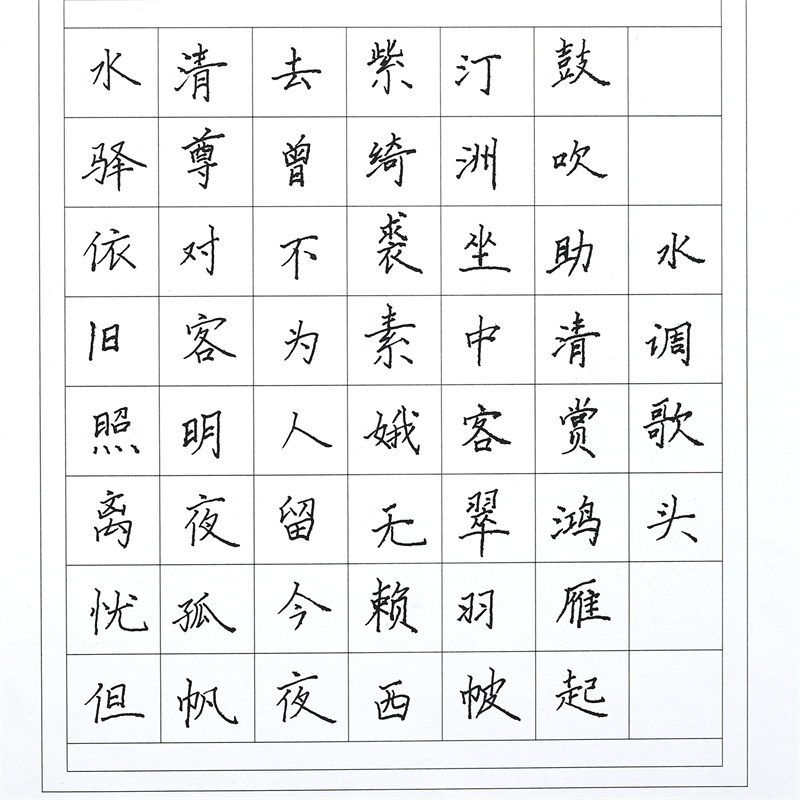 水调歌头
鼓吹助清赏鸿雁起
汀洲坐中客翠羽帔
紫绮裘素娥无赖西
去曾不为人留今夜
清尊对客明夜孤帆
水驿依旧照离忧但